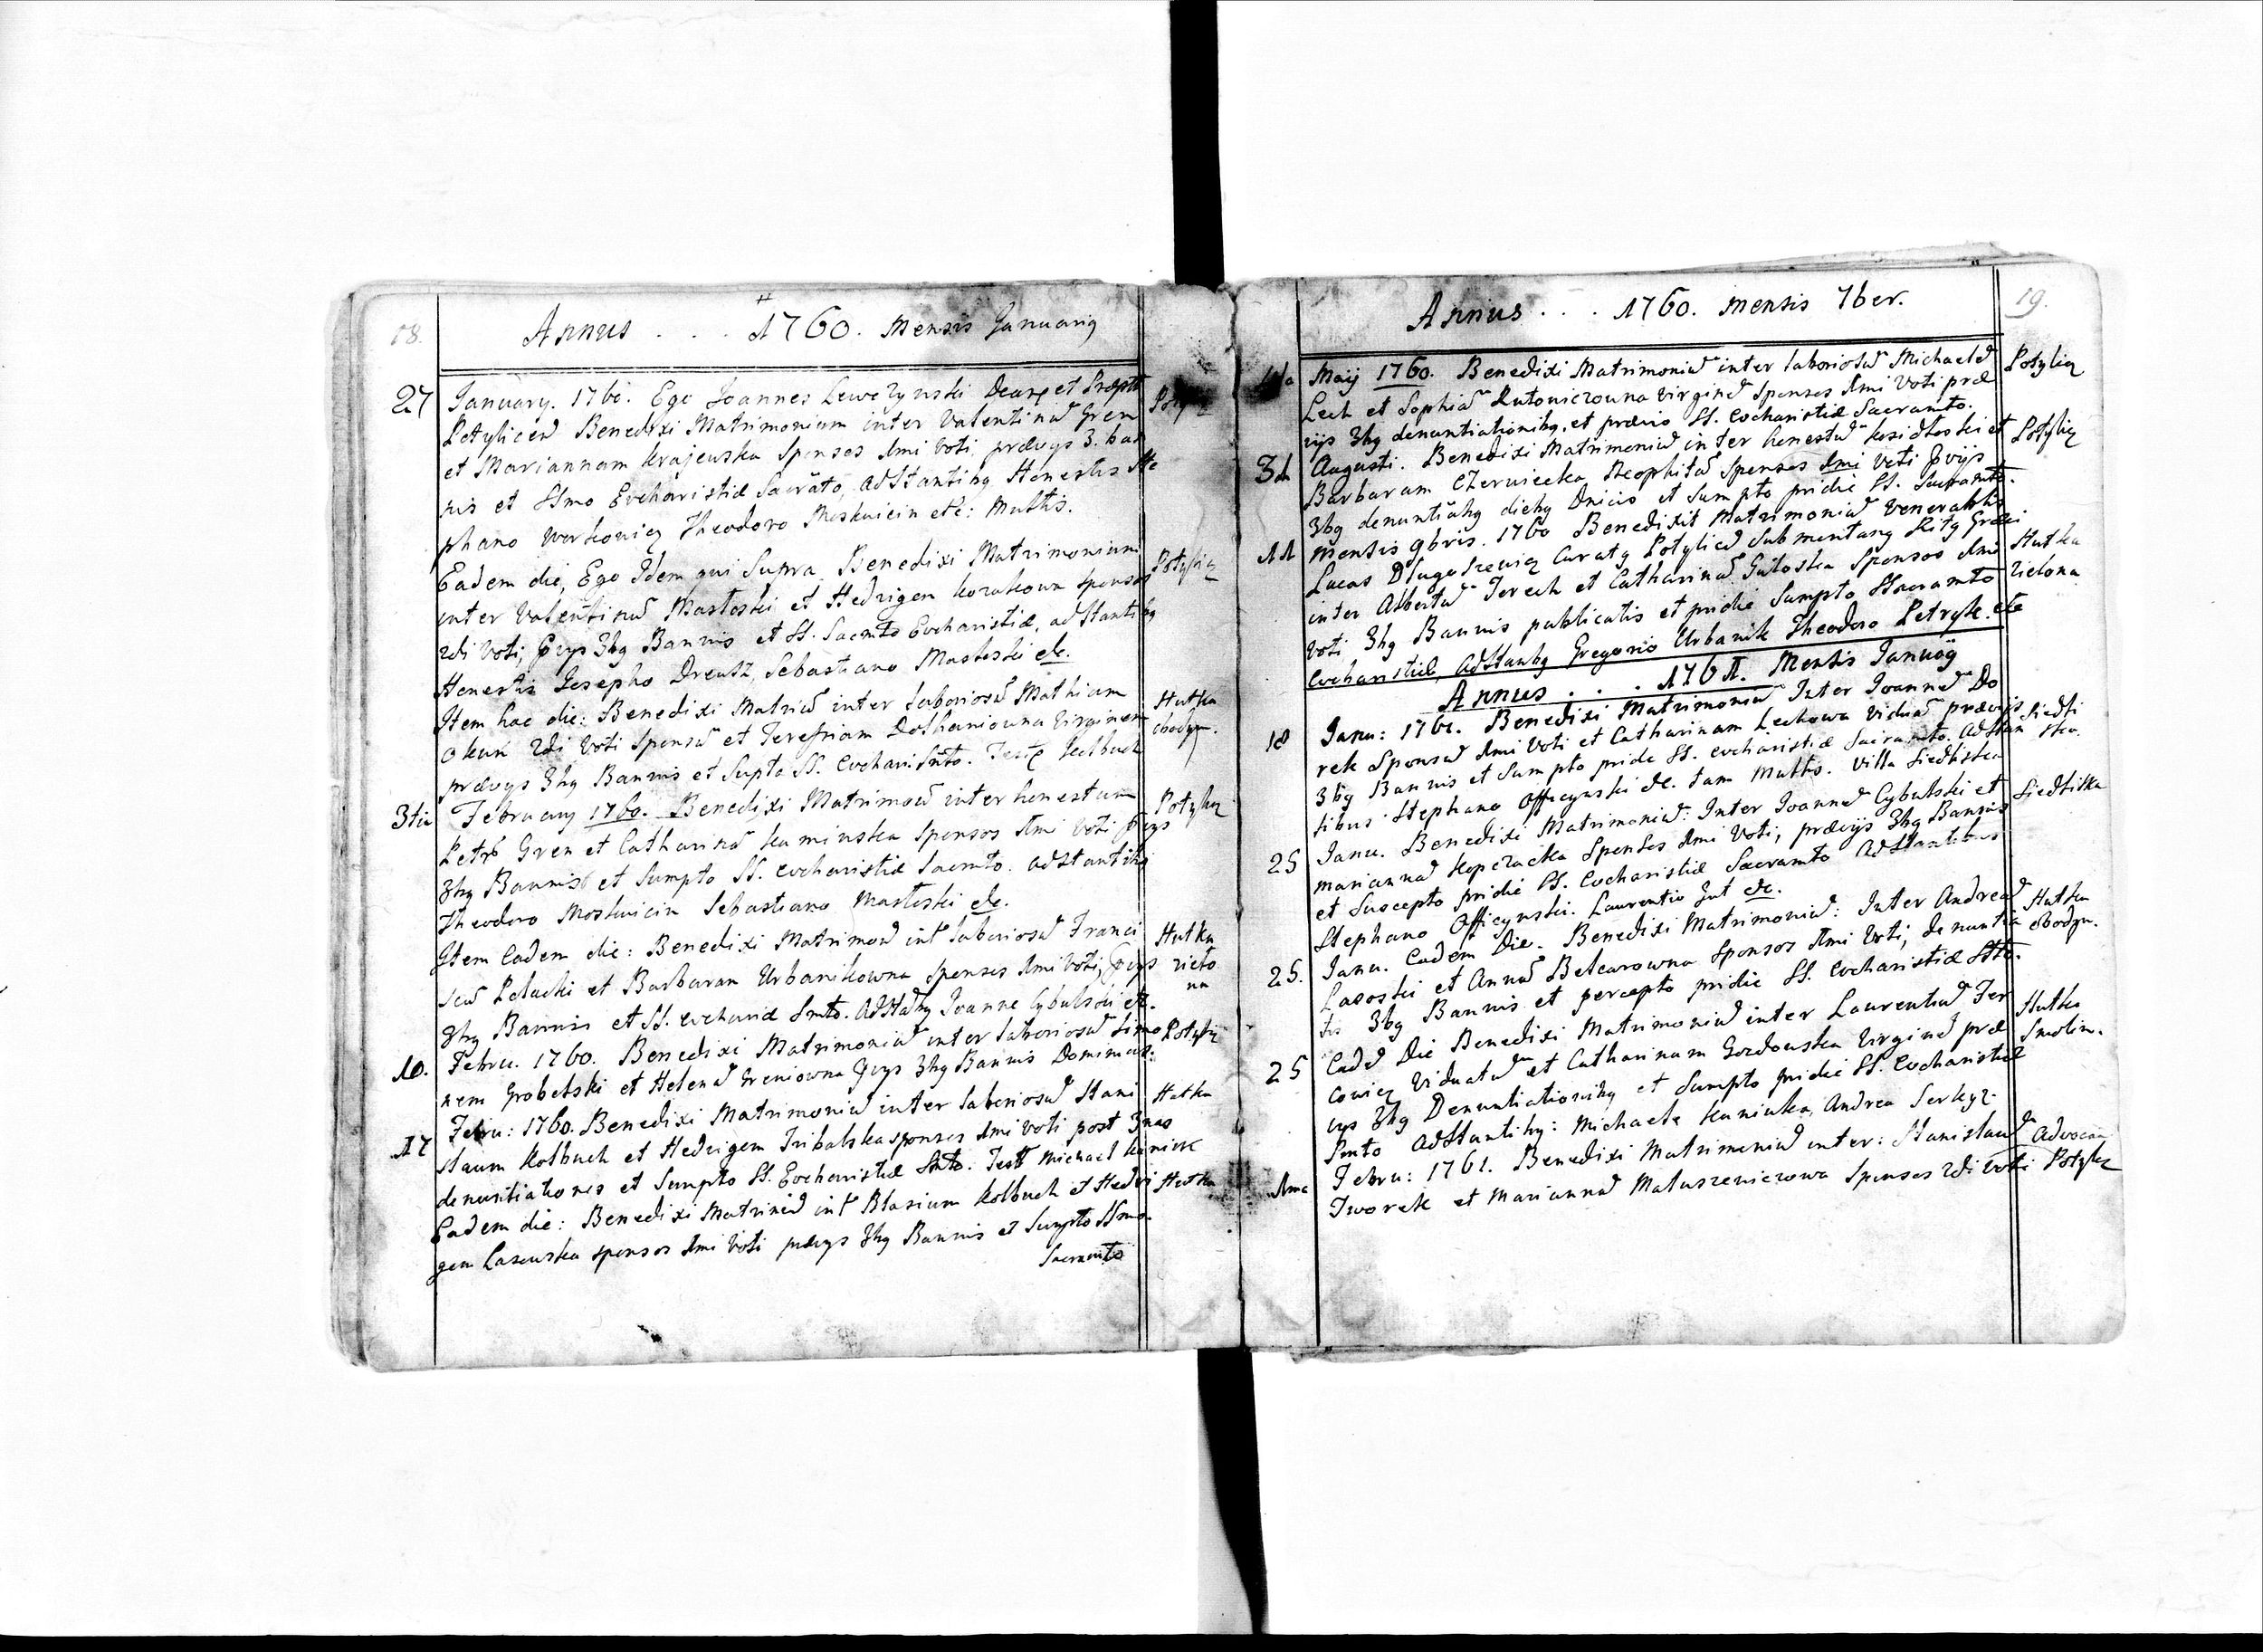 18.
Annus . . . 1760. Mensis Januarij
27 January. 1760. Ego Joannes Lewczynski Decanꝯ et Præptꝯ
Potyliceñ Benedixi Matrimonium inter Valentinũ Gren
et Mariannam Krajewska Sponsos 1mi Voti, prævys 3. ban
nis et SSmo Eucharistiæ Sacrãto, adstantibꝯ Honestis Ste
phano Werkowicz Theodoro Moskwicin etc: Multis.
Potylicz
Eadem die, Ego Idem qui Supra Benedixi Matrimonium
inter Valentinũ Masłoski et Hedvigem Kozakowa Sponsos
2di Voti, pvys 3bꝯ Bannis et SS. Sacmto Eucharistiæ, adstantibꝯ
Honestis Josepho Dreutz, Sebastiano Masłoski etc.
Potylicz
Item hac die: Benedixi Matrim̃ inter Laboriosũ Mathiam
Okuń 2di Voti Sponsũ et Teresiam Dołhaniowna Virginem
prævys 3bꝯ Bannis et Supto SS. Euchari Smto. Teste Kołbuch
Hutka
obodyn.
3tia February 1760. Benedixi Matrimoñ inter honestum
Petrũ Gren et Catharinã Kaminska Sponsos 1mi Voti pvys
3bꝯ Bannis et Sumpto SS. Eucharistiæ Sacmto. adstantibꝯ
Theodoro Moskwicin Sebastiano Masłoski etc.
Potylicz
Item Eadem die: Benedixi Matrimoñ int Laboriosũ Franci
scũ Pełacki et Barbaram Urbanikowna Sponsos 1mi Voti, pvys
3bꝯ Bannis et SS. Eucharis Smto. Adstabꝯ Joanne Cybulski etc.
Hutka
zielo
na
10. Febru. 1760. Benedixi Matrimoniũ inter Laboriosũ Simo
nem Grobelski et Helenã Greniowna pvys 3bꝯ Bannis Dominic:
Potylicz
17 Febru: 1760. Benedixi Matrimoniũ inter Laboriosũ Stani
slaum Kołbuch et Hedvigem Tribalska sponsos 1mi Voti post 3nas
denuntiationes et Sumpto SS. Eucharistiæ Smto. Test Michael
Hutka
Eadem die: Benedixi Matrimũ int Blasium Kołbuch et Hedvi
gem Łasewska sponsos 1mi Voti prævys 3bꝯ Bannis et Sumpto SSmo
Sacramto
Hutka
Annus . . . 1760. mensis 7ber.
19.
Maij 1760. Benedixi Matrimoniũ inter laboriosũ Michaelẽ
Lech et Sophiã Antoniczowna Virginẽ Sponsos 1mi Voti præ
vijs 3bꝯ denuntiationibꝯ, et prævio SS. Eucharistiæ Sacramto.
Potylicz
3tia Augusti. Benedixi Matrimoniũ inter honestũ Kosidłoski et
Barbaram Czerniecka Neophitã Sponsos 1mi Voti pvijs
3bꝯ denuntiãbꝯ diebꝯ Dnicis et Sumpto pridie SS. Sacramto.
Potylicz
11 Mensis 9bris. 1760 Benedixit Matrimoniũ Venerabilis
Lucas Długoszewicz Curatꝯ Potyliceñ Submontanꝯ Ritꝯ Græci
inter Albertũ Jerech et Catharinã Gutoska Sponsos 1mi
Voti 3bꝯ Bannis publicatis et pridie Sumpto SSacramto
Eucharistiæ, adstantbꝯ Gregorio Urbanik Theodoro Petryk. etc
Hutka
zielona
Annus . . . 1761. Mensis Januarij
18 Janu: 1761. Benedixi Matrimoniũ Inter Joannẽ Do
rek Sponsũ 1mi Voti et Catharinam Lechowa Viduã prævijs
3bꝯ Bannis et Sumpto pride SS. Eucharistiæ Sacramto. Adstan
tibus Stephano Officynski etc. tam Multis. Villa Siedliska
Siedli
ska
25 Janu. Benedixi Matrimoniũ: Inter Joannẽ Cybulski et
mariannã Kopczacka Sponsos 1mi Voti, prævijs 3bꝯ Bannis
et Suscepto pridie SS. Eucharistiæ Sacramto Adstantibus
Stephano Officynski. Laurentio Gut etc.
Siedliska
25. Janu. Eadem Die. Benedixi Matrimoniũ: Inter Andreã
Lasoski et Annã Belcarowna Sponsos 1mi Voti, denuntia
tis 3bꝯ Bannis et percepto pridie SS. Eucharistiæ SSto.
Hutka
obodyn.
25 Eadẽ Die Benedixi Matrimoniũ inter Laurentiũ Fer
cowicz Viduatũ et Catharinam Gozdowska Virginẽ præ
vys 3bꝯ Denuntiationibꝯ et Sumpto pridie SS. Eucharistiæ
Smto Adstantibꝯ: Michaele Kaniuka, Andrea Serkyz.
Hutka
Smolin.
1ma Febru: 1761. Benedixi Matrimoniũ inter: Stanislaũ
Tworek et Mariannã Matuszewiczowa Sponsos 2di Voti
Advocã
Potylicz